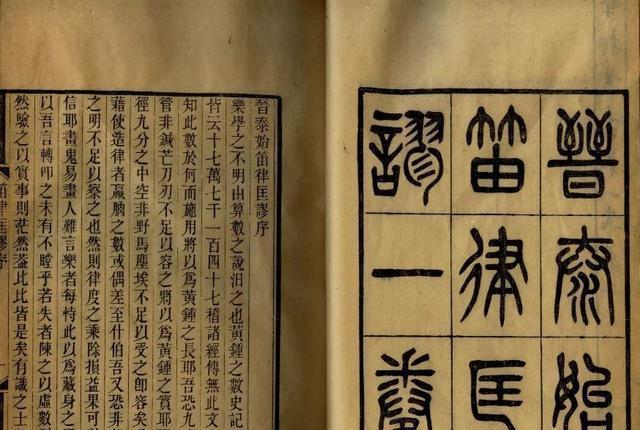 晉泰始
笛律匡
謬一卷
晉泰始笛律匡謬序
樂學之不明由算數之說汨之也黃鍾之數史記
皆云十七萬七千一百四十七稽諸經傳無此文
知此數於何而施用將以爲黃鍾之長耶吾恐九
管非鍼芒刀刃不足以容之將以爲黃鍾之實耶
徑九分之中空非野馬塵埃不足以受之卽容矣
藉使造律者嬴朒之數或偶差至什伯吾又恐非
之明不足以察之也然則律度之乘除損益果可
信耶畫鬼易畫人難言樂者每恃此以爲藏身之
以吾言轉叩之未有不瞠乎若失者陳之以虛數
然驗之以實事則茫然葢比比皆是矣有識之士
笛律匡謬序